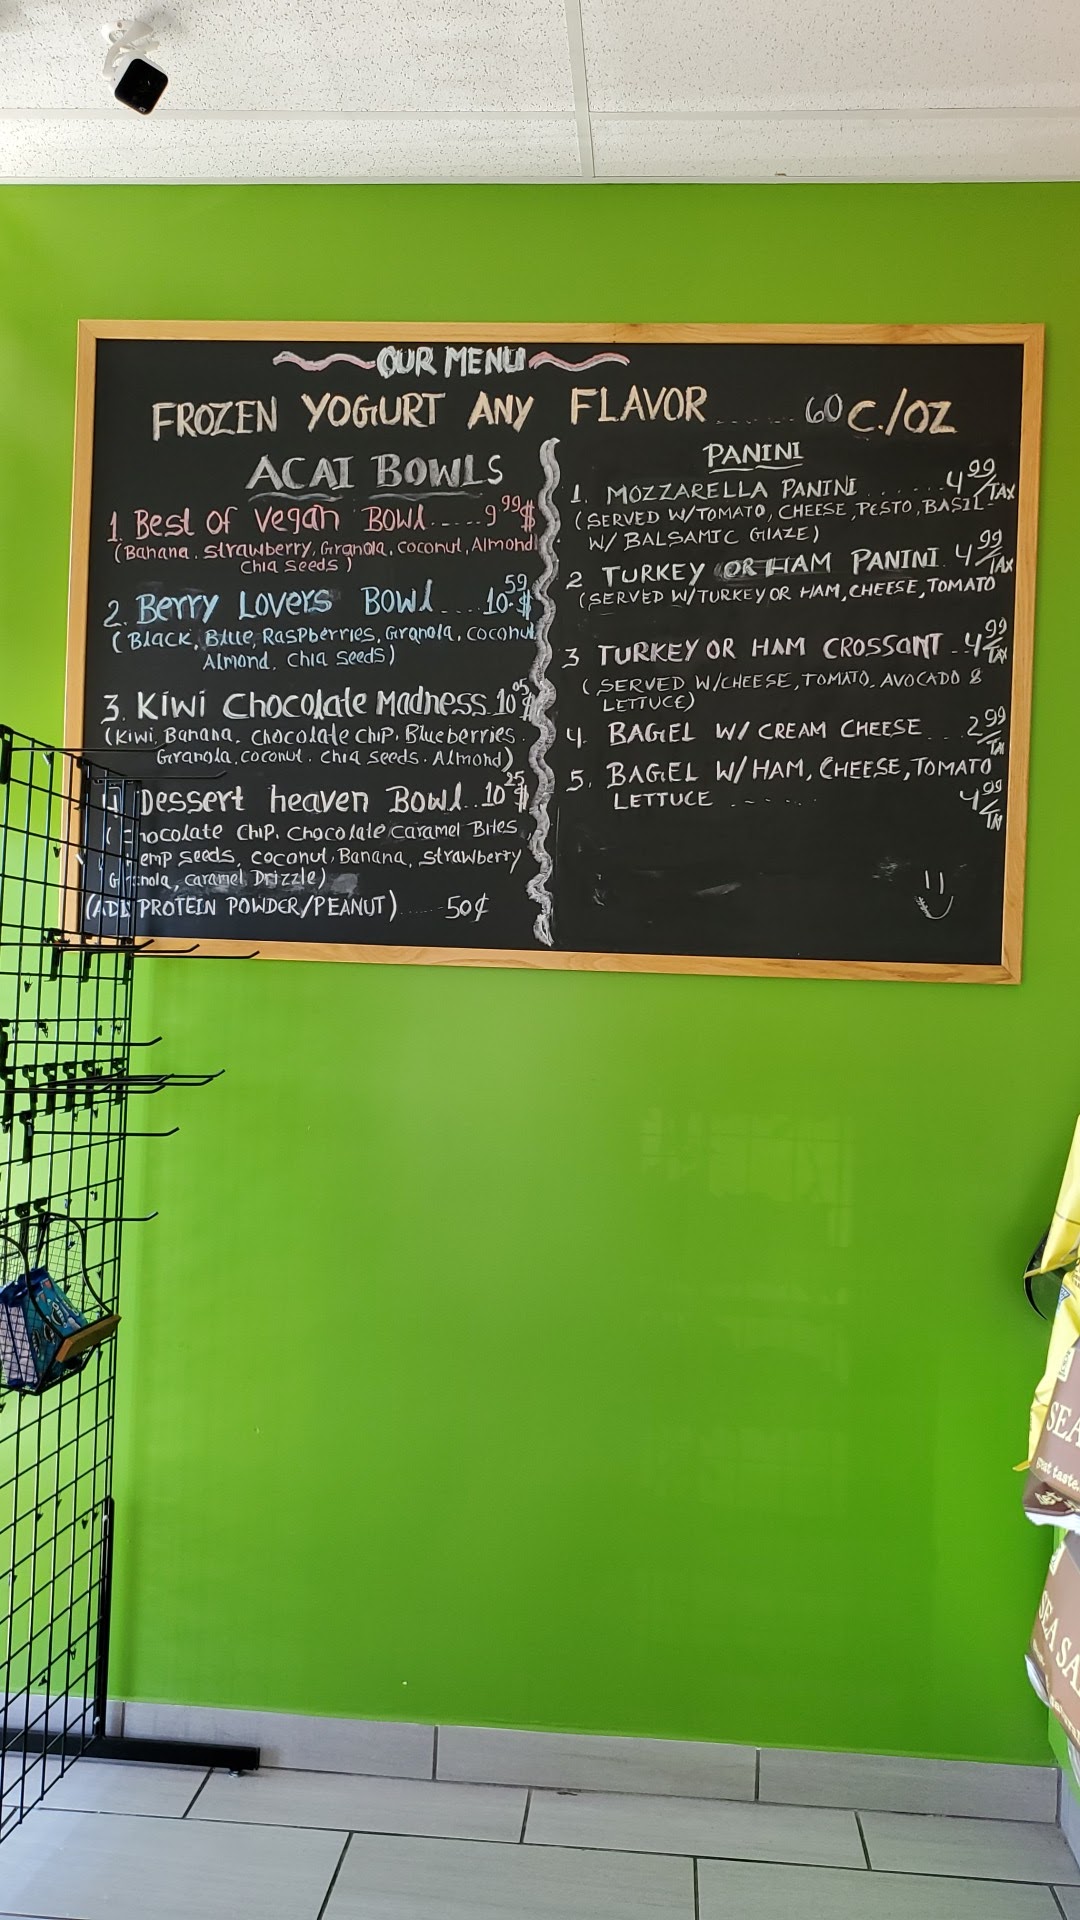 OUR MENU
FROZEN YOGURT ANY FLAVOR ...... 60 C./OZ
ACAI BOWLS
1. Best of Vegan Bowl ..... 9 99 $
(Banana. strawberry, Granola, coconut, Almond
Chia seeds)
2. Berry Lovers Bowl .... 10. 59 $
(Black, Blue, Raspberries, Granola, coconut,
Almond, chia seeds)
3. Kiwi Chocolate Madness. 10 05 $
(Kiwi, Banana, chocolate chip, Blueberries.
Granola, coconut. chia seeds. Almond)
4 Dessert heaven Bowl .. 10 25 $
(Chocolate Chip. Chocolate Caramel Bites,
emp seeds, coconut, Banana, strawberry
Granola, caramel Drizzle)
(ADD PROTEIN POWDER/PEANUT) ...... 50¢
PANINI
1. MOZZARELLA PANINI ....... 4 99/TAX
(SERVED W/TOMATO, CHEESE, PESTO, BASIL-
W/ BALSAMIC GLAZE)
2 TURKEY OR HAM PANINI. 4 99/TAX
(SERVED W/TURKEY OR HAM, CHEESE, TOMATO
3 TURKEY OR HAM CROSSANT . 4 99/TAX
(SERVED W/CHEESE, TOMATO, AVOCADO &
LETTUCE)
4. BAGEL W/ CREAM CHEESE ... 2 99/TAX
5. BAGEL W/HAM, CHEESE, TOMATO
LETTUCE ....... 4 99/TAX
SEA
great taste.
SEA SA